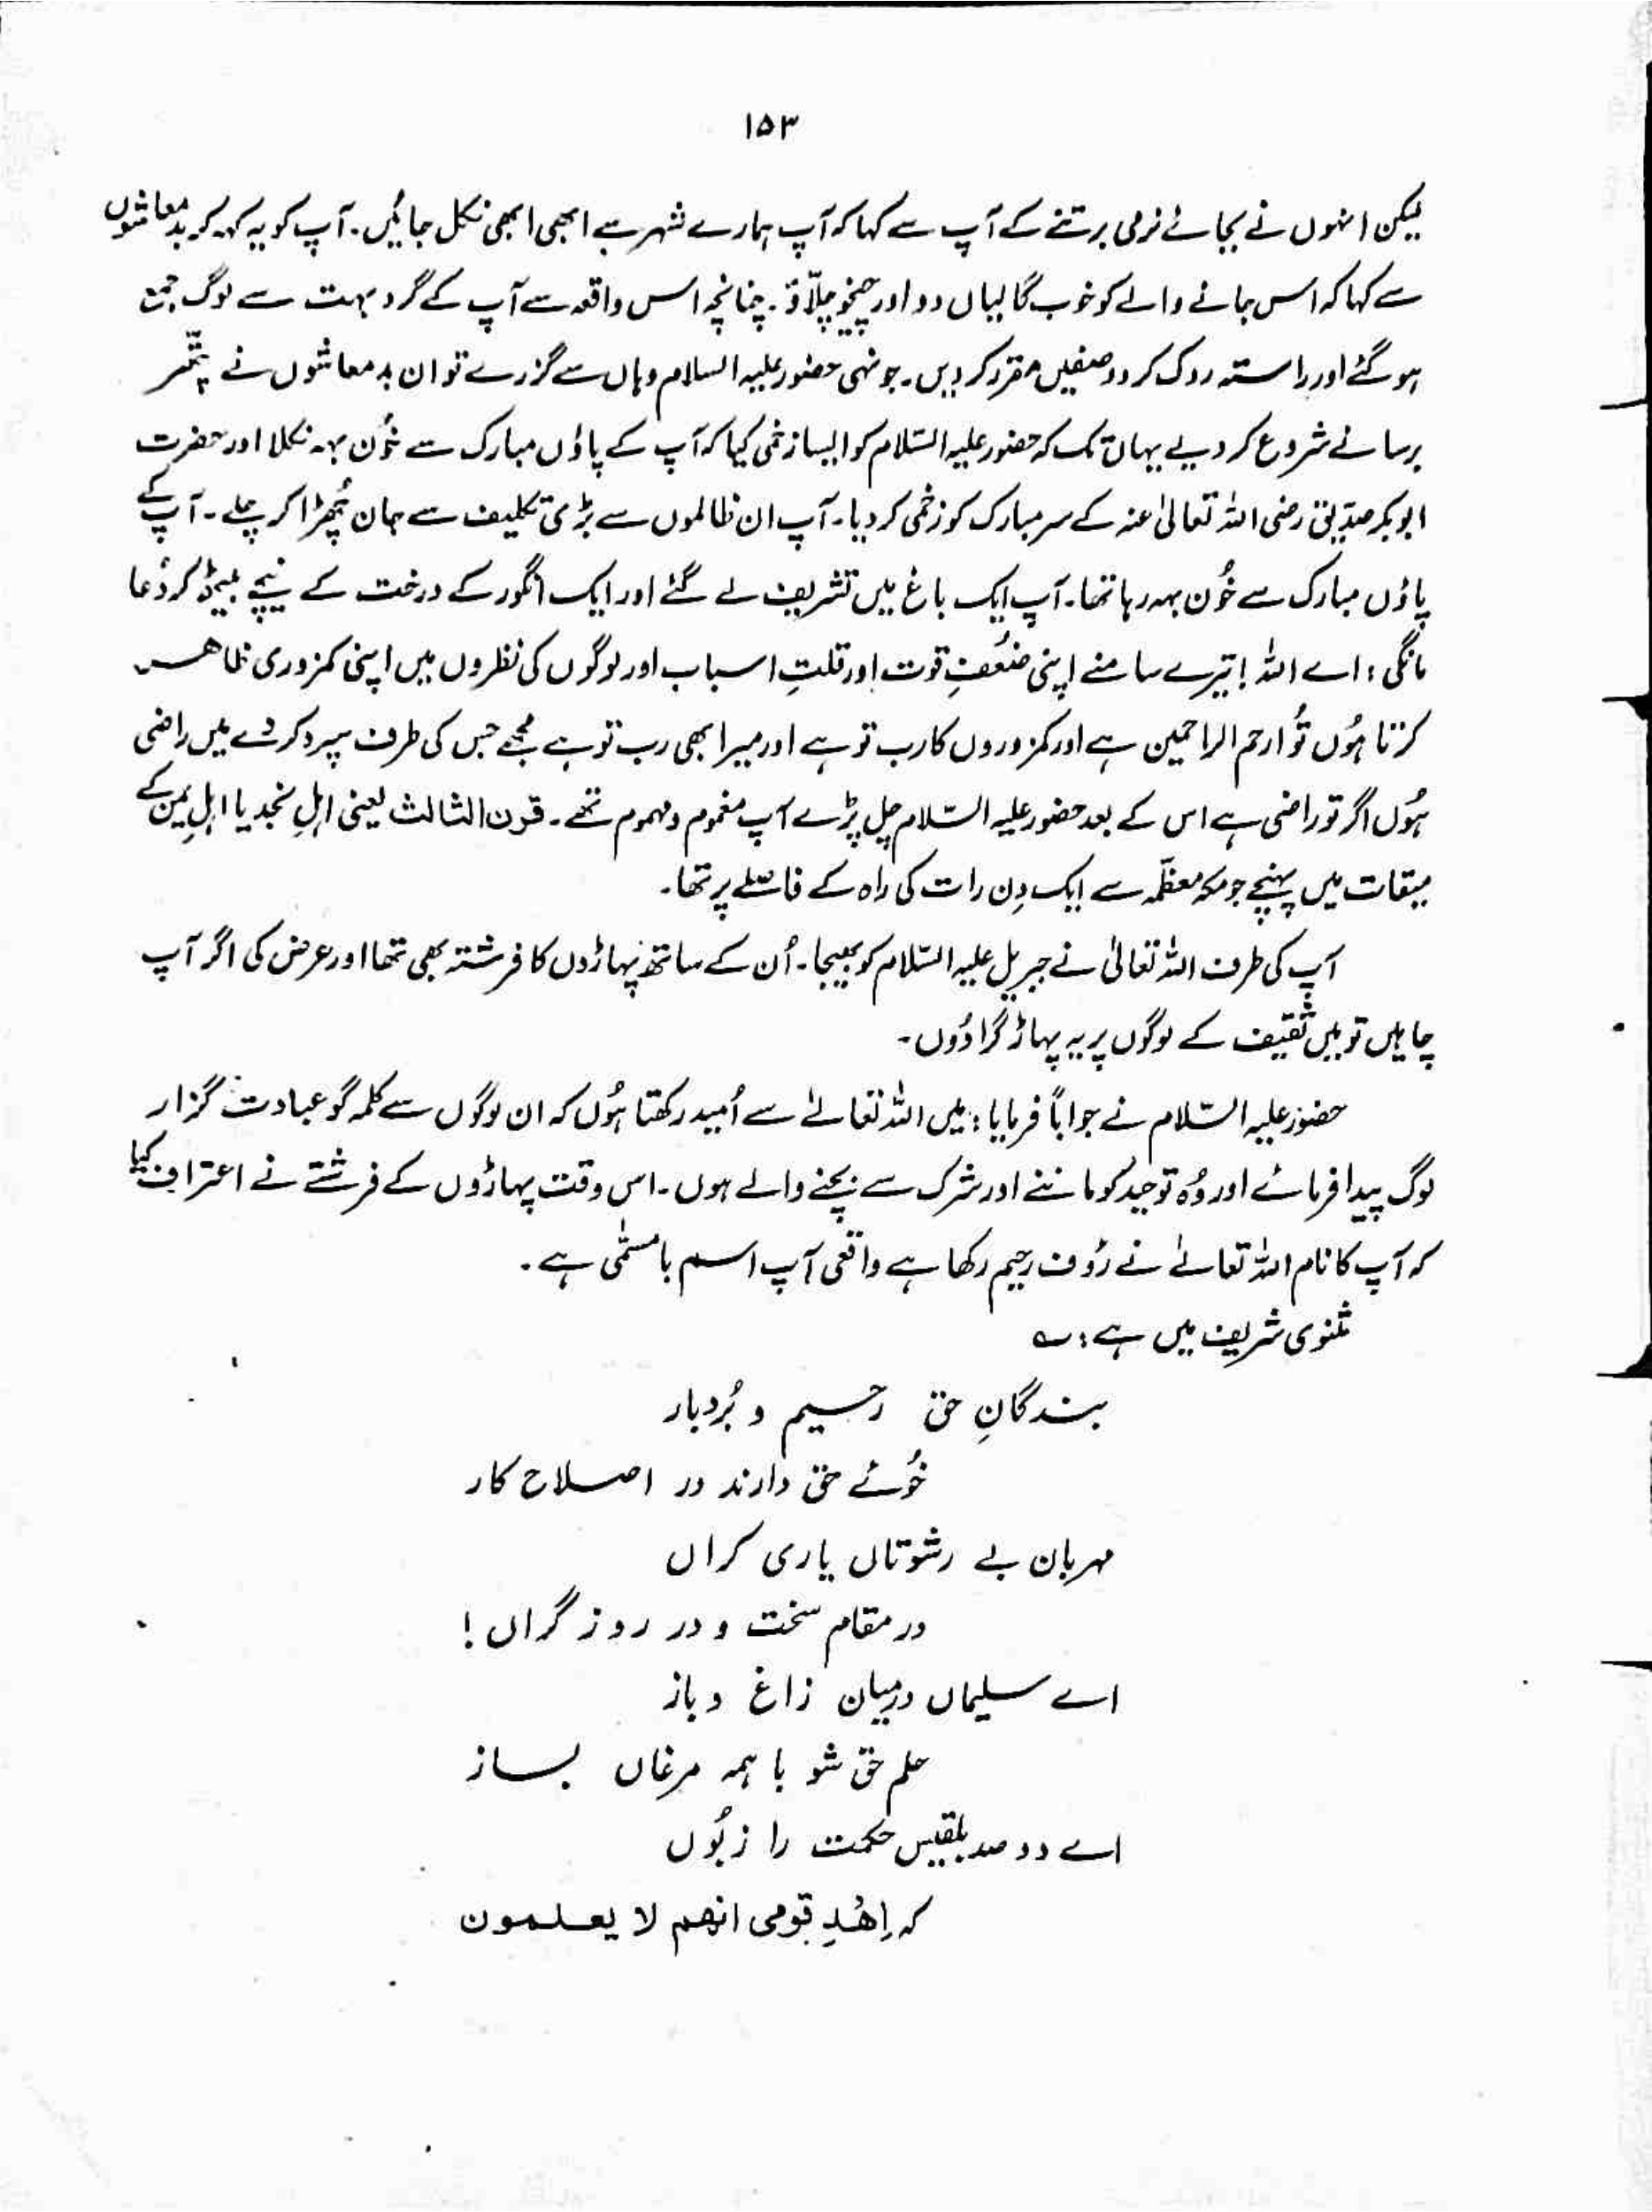 ۱۵۳
لیکن انہوں نے بجائے نرمی برتنے کے آپ سے کہا کہ آپ ہمارے شہر سے ابھی ابھی نکل جائیں۔ آپ کو یہ کہہ کر بدمعاشوں
سے کہا کہ اس جانے والے کو خوب گالیاں دو اور چیخو چلّاؤ۔ چنانچہ اس واقعہ سے آپ کے گرد بہت سے لوگ جمع
ہو گئے اور راستہ روک کر دو صفیں مقرر کر دیں۔ جونہی حضور علیہ السلام وہاں سے گزرے تو ان بدمعاشوں نے پتھر
برسانے شروع کر دیے یہاں تک کہ حضور علیہ السّلام کو ایسا زخمی کیا کہ آپ کے پاؤں مبارک سے خُون بہہ نکلا اور حضرت
ابوبکر صدّیق رضی اللہ تعالیٰ عنہ کے سر مبارک کو زخمی کر دیا۔ آپ ان ظالموں سے بڑی تکلیف سے جان چُھڑا کر چلے۔ آپ کے
پاؤں مبارک سے خُون بہہ رہا تھا۔ آپ ایک باغ میں تشریف لے گئے اور ایک انگور کے درخت کے نیچے بیٹھ کر دُعا
مانگی: اے اللہ! تیرے سامنے اپنی ضُعفِ قوت اور قلتِ اسباب اور لوگوں کی نظروں میں اپنی کمزوری ظاہر
کرتا ہُوں تُو ارحم الراحمین ہے اور کمزوروں کا رب تو ہے اور میرا بھی رب تو ہے مجھے جس کی طرف سپرد کر دے میں راضی
ہُوں اگر تو راضی ہے اس کے بعد حضور علیہ السّلام چل پڑے آپ مغموم و مہموم تھے۔ قرن الثالث یعنی اہلِ نجد یا اہلِ یمن کے
میقات میں پہنچے جو مکہ معظّمہ سے ایک دِن رات کی راہ کے فاصلے پر تھا۔
آپ کی طرف اللہ تعالیٰ نے جبریل علیہ السّلام کو بھیجا۔ اُن کے ساتھ پہاڑوں کا فرشتہ بھی تھا اور عرض کی اگر آپ
چاہیں تو میں ثقیف کے لوگوں پر یہ پہاڑ گرا دُوں۔
حضور علیہ السّلام نے جواباً فرمایا: میں اللہ تعالےٰ سے اُمید رکھتا ہُوں کہ ان لوگوں سے کلمہ گو عبادت گزار
لوگ پیدا فرمائے اور وُہ توحید کو ماننے اور شرک سے بچنے والے ہوں۔ اس وقت پہاڑوں کے فرشتے نے اعتراف کیا
کہ آپ کا نام اللہ تعالےٰ نے رؤف رحیم رکھا ہے واقعی آپ اسم بامسمّٰی ہے۔
مثنوی شریف میں ہے: ؎
بندگانِ حق رحیم و بُردبار
خُوئے حق دارند در اصلاح کار
مہربان بے رشوتاں یاری کراں
در مقام سخت و در روز گراں!
اے سلیماں درمیان زاغ و باز
حلم حق شو با ہمہ مرغاں بساز
اے دو صد بلقیس حکمت را زبُوں
کہ اِھْدِ قومی انھم لا یعلمون